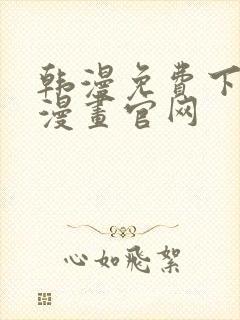 韩漫免費下
漫畫官网
心如飛絮